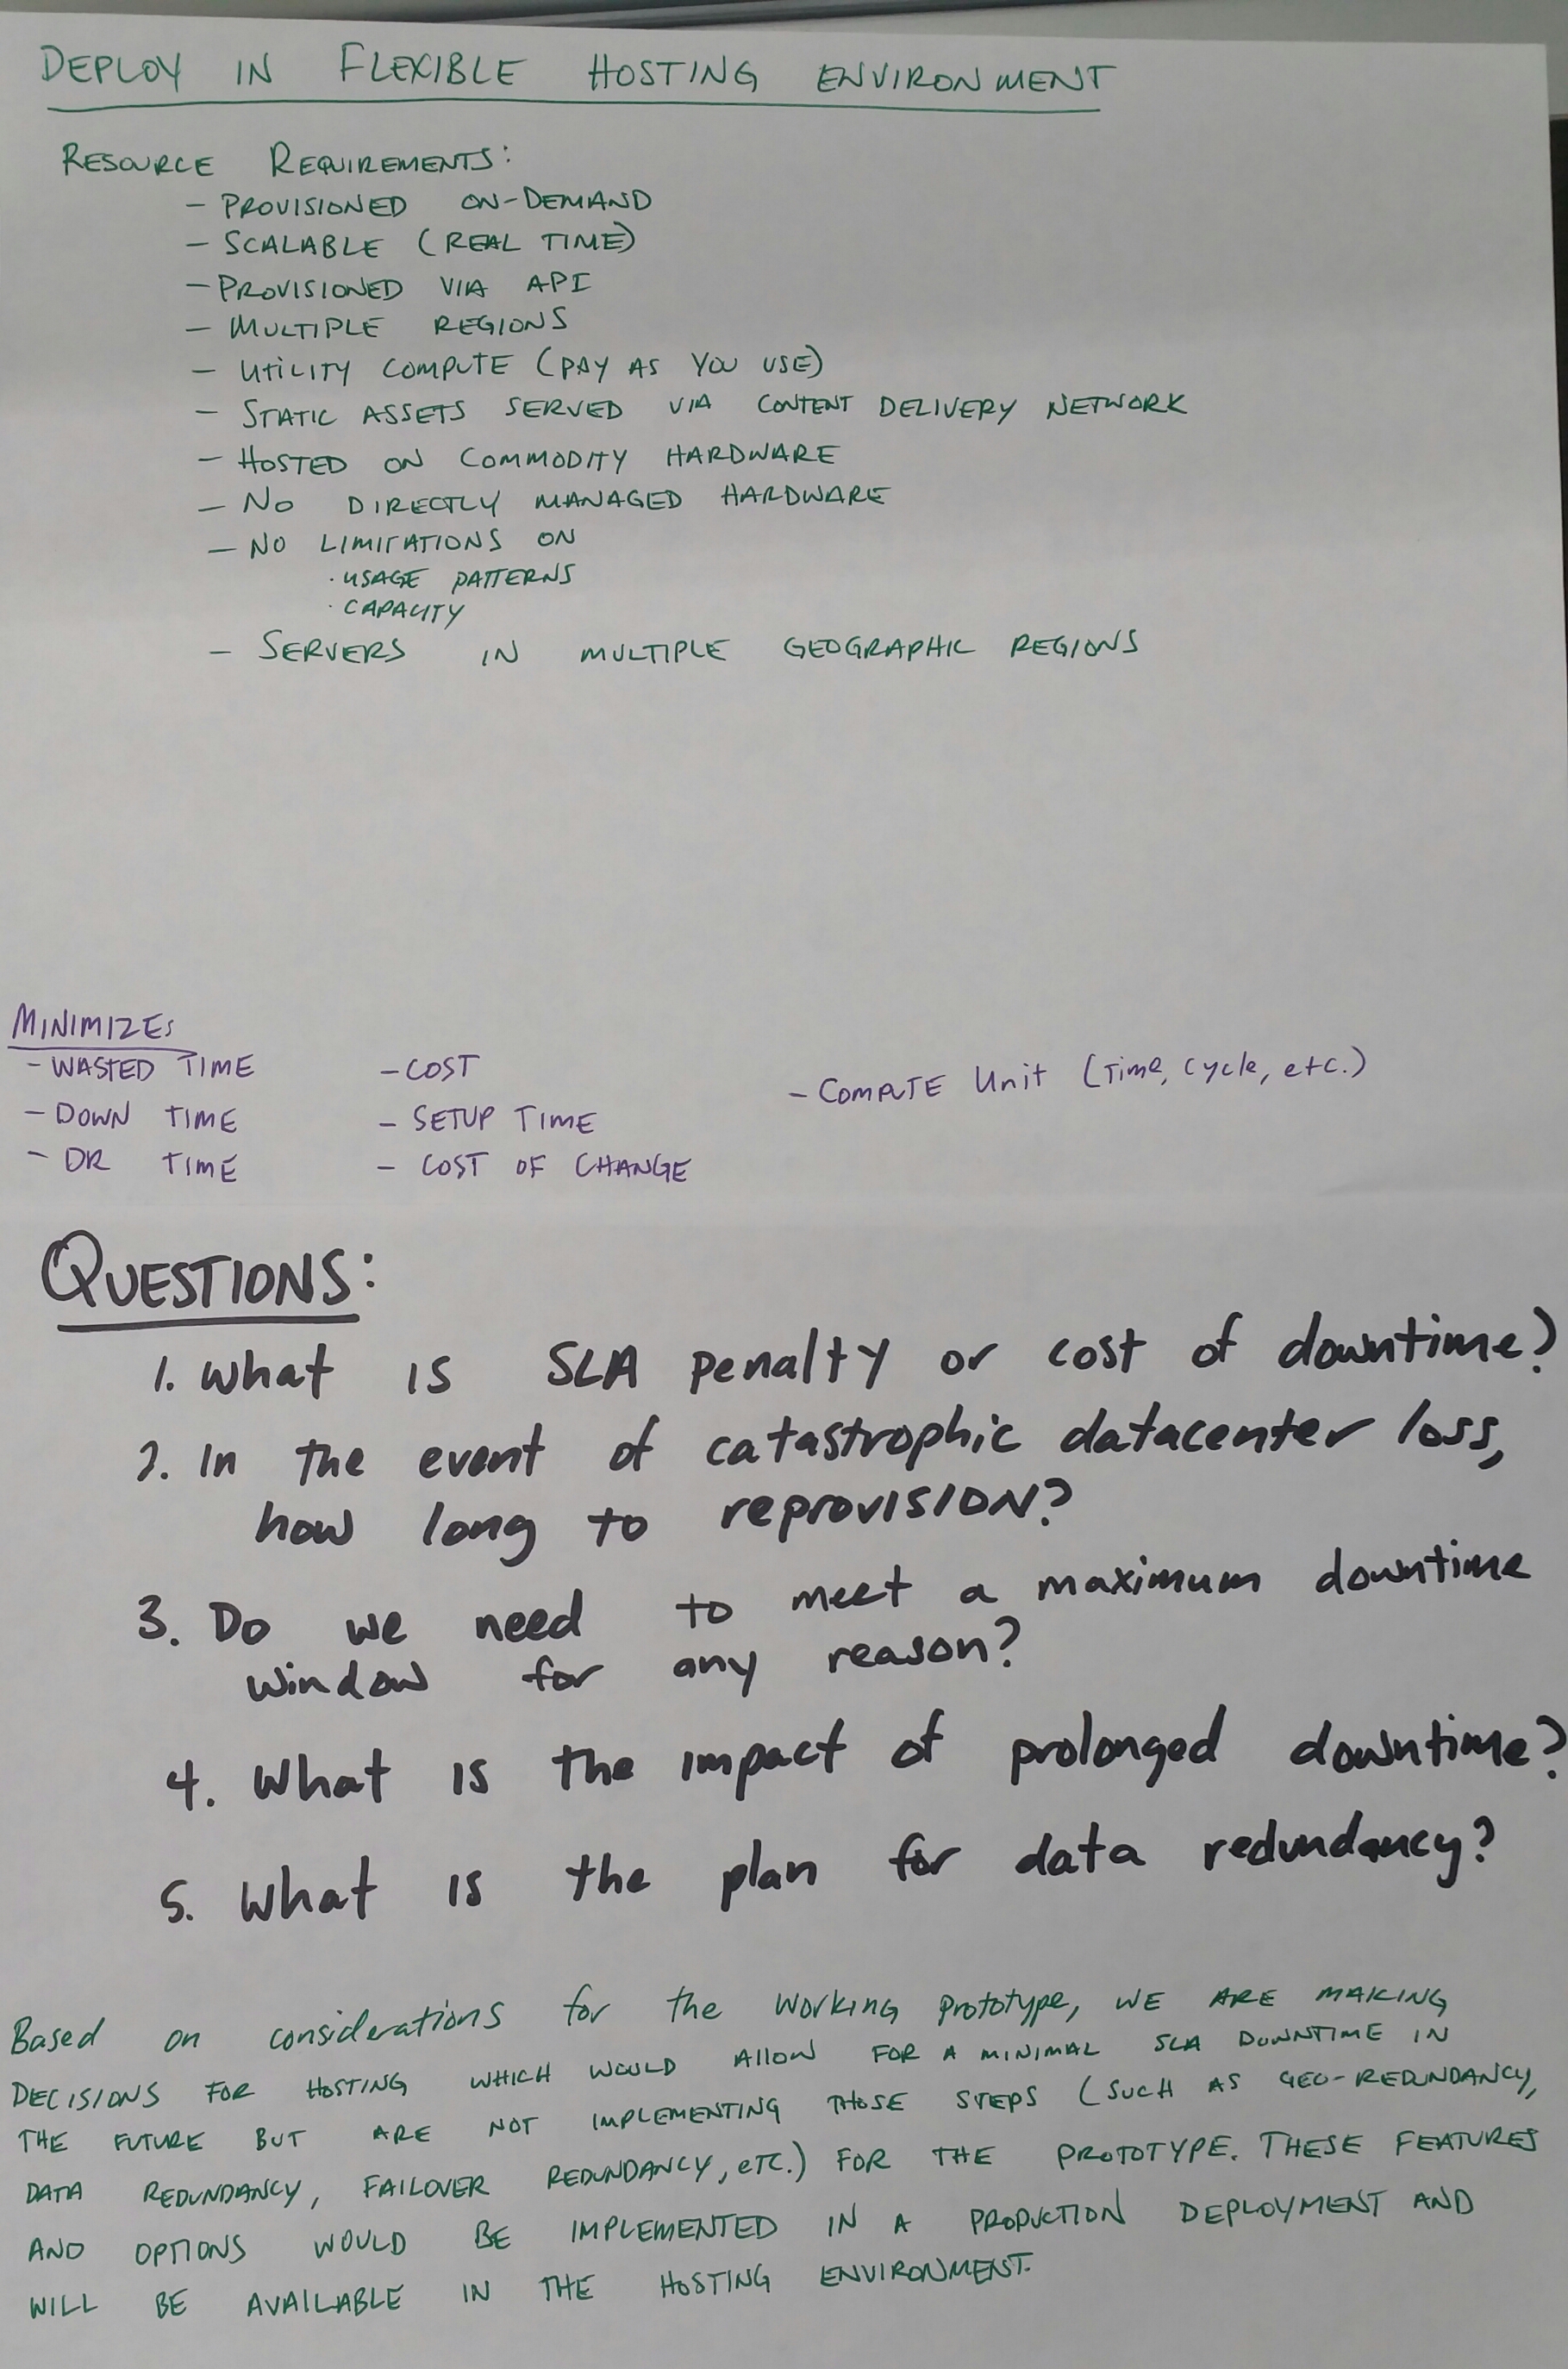 DEPLOY IN FLEXIBLE HOSTING ENVIRONMENT
RESOURCE REQUIREMENTS:
- PROVISIONED ON-DEMAND
- SCALABLE (REAL TIME)
- PROVISIONED VIA API
- MULTIPLE REGIONS
- UTILITY COMPUTE (PAY AS YOU USE)
- STATIC ASSETS SERVED VIA CONTENT DELIVERY NETWORK
- HOSTED ON COMMODITY HARDWARE
- NO DIRECTLY MANAGED HARDWARE
- NO LIMITATIONS ON
· USAGE PATTERNS
· CAPACITY
- SERVERS IN MULTIPLE GEOGRAPHIC REGIONS
MINIMIZES
- WASTED TIME
- DOWN TIME
- DR TIME
- COST
- SETUP TIME
- COST OF CHANGE
- COMPUTE Unit (Time, cycle, etc.)
QUESTIONS:
1. What is SLA penalty or cost of downtime?
2. In the event of catastrophic datacenter loss,
how long to reprovision?
3. Do we need to meet a maximum downtime
window for any reason?
4. What is the impact of prolonged downtime?
5. What is the plan for data redundancy?
Based on considerations for the working prototype, WE ARE MAKING
DECISIONS FOR HOSTING WHICH WOULD ALLOW FOR A MINIMAL SLA DOWNTIME IN
THE FUTURE BUT ARE NOT IMPLEMENTING THOSE STEPS (SUCH AS GEO-REDUNDANCY,
DATA REDUNDANCY, FAILOVER REDUNDANCY, ETC.) FOR THE PROTOTYPE. THESE FEATURES
AND OPTIONS WOULD BE IMPLEMENTED IN A PRODUCTION DEPLOYMENT AND
WILL BE AVAILABLE IN THE HOSTING ENVIRONMENT.